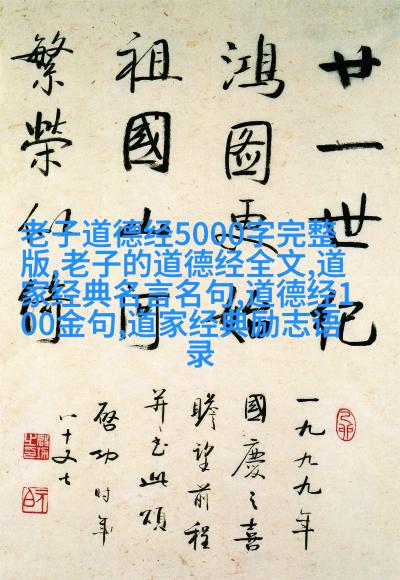 廿一世紀
鴻圖更
祖國山河
繁榮似錦
一九九九年
國慶之喜
瞻望前程
并书此頌
啓功时年
八十又七
老子道德经5000字完整
版,老子的道德经全文,道
家经典名言名句,道德经1
00金句,道家经典励志语
录